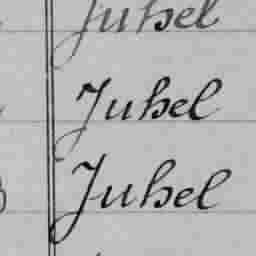 Juhel
Juhel
Juhel